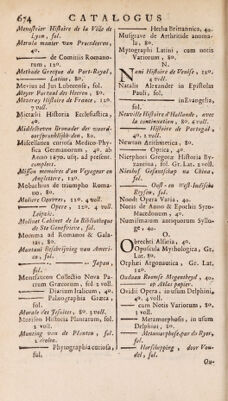 674 CATALOGUS
Menestrier Histoire de la Ville de
Lyon, fol.
Morale maniere van Procederen,
40.
—— de Comitiis Romano-
rum, 120.
Methode Grecque du Port-Royal,
80.
Mevius ad Jus Lubecense, fol.
Meyer Portael des Heeren, 80.
Mezeray Histoire de France, 120.
7 voll.
Micraeli Historia Ecclesiastica,
40.
Middelhoven
80.
Miscellanea curiosa Medico-Phy-
sica Germanorum, 40. ab
Anno 1670. usq. ad praesent.
complet.
Misson memoires d'un Voyageur en
Angleterre, 120.
Mobachius de triumpho Roma-
no, 80.
Moliere Oeuvres, 120. 4 voll.
—— Opere, 120. 4 voll.
Leipsic.
Molinet Cabinet de la Bibliotheque
de Ste Genefvieve, fol.
Momma ad Romanos & Gala-
tas, 80.
Montani Beschryving van Ameri-
ca, fol.
—— Japan,
fol.
Montfaucon Collectio Nova Pa-
trum Graecorum, fol. 2 voll.
—— Diarium Italicum, 40.
—— Palaeographia Graeca,
fol.
Morale des Jesuites, 80. 3 voll.
Morison Historia Plantarum, fol.
2 voll.
Munting van de Planten, fol.
2 voll.
—— Phytographia curiosa,
fol.
—— Herba Britannica, 40.
Musgrave de Arthritide anoma-
la, 80.
Mytographi Latini, cum notis
Variorum, 80.
N.
Nani Histoire de Venise, 120.
4 voll.
Natalis Alexander in Epistolas
Pauli, fol.
—— in Evangelia,
fol.
Neuville Histoire d'Hollande, avec
la continuation, 80. 4 voll.
—— Histoire de Portugal,
40. 2 voll.
Newton Arithmetica, 80.
—— Optica, 40.
Nicephori Gregorae Historia By-
zantina, fol. Gr. Lat. 2 voll.
Nieuhof Gesantschap na China,
fol.
—— Oost- en West-Indische
Reysen, fol.
Noodt Opera Varia, 40.
Noris de Anno & Epochis Syro-
Macedonum, 40.
Numismatum antiquorum Syllo-
ge, 40.
O.
Obrechti Alsatia, 40.
Opuscula Mythologica, Gr.
Lat. 80.
Orphei Argonautica, Gr. Lat.
120.
Oudaan Roomse Mogentheyd, 40.
op Atlas papier.
Ovidii Opera, in usum Delphini,
40. 4 voll.
—— cum Notis Variorum, 80.
3 voll.
—— Metamorphosis, in usum
Delphini, 80.
—— Metamorphose par de Ryer,
fol.
—— Herschepping, door Von-
del, fol.
Ou-